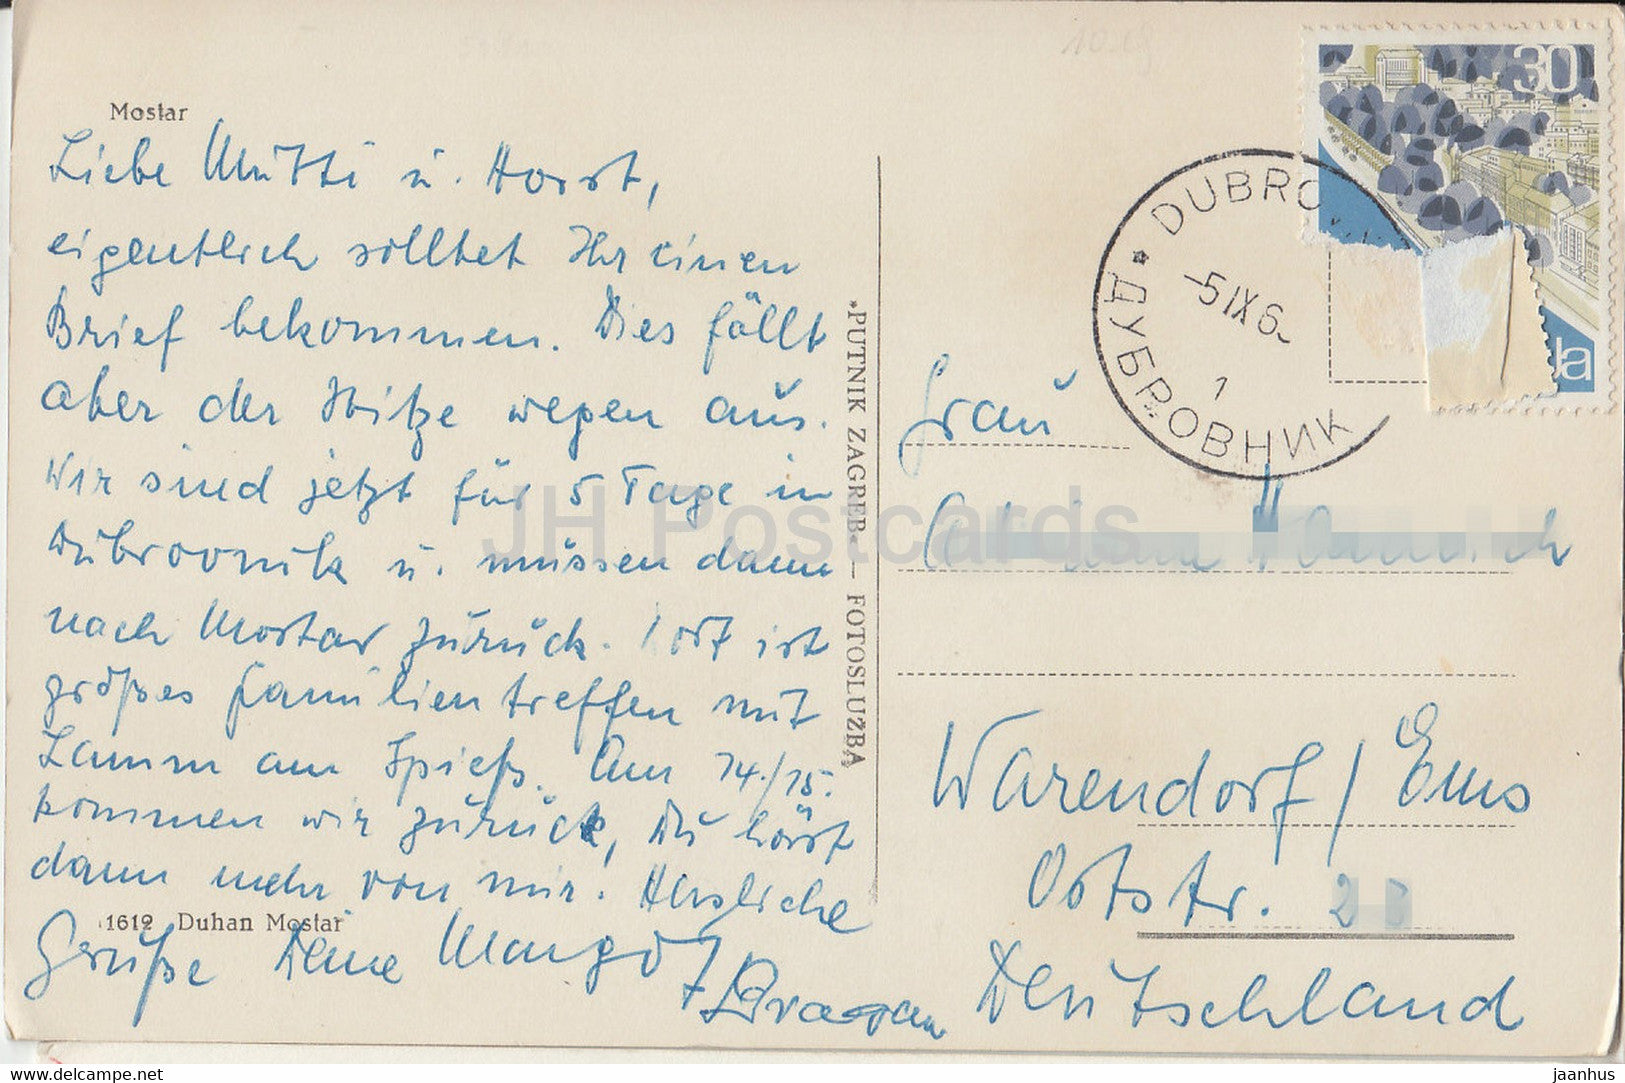 Mostar
Liebe Mutti u. Horst,
eigentlich solltet Ihr einen
Brief bekommen. Dies fällt
aber der Hitze wegen aus.
Wir sind jetzt für 5 Tage in
Dubrovnik u. müssen dann
nach Mostar zurück. Dort ist
großes Familientreffen mit
Lamm am Spieß. Am 14./15.
kommen wir zurück, Du hörst
dann mehr von mir. Herzliche
Grüße Deine Margot
1612 Duhan Mostar
*PUTNIK ZAGREB – FOTOSLUŽBA
30
DUBRO
-5 IX 6
1
ДУБРОВНИК
Frau
Warendorf / Ems
Oststr. 2
Deutschland
JH Postcards
www.delcampe.net
jaanhus